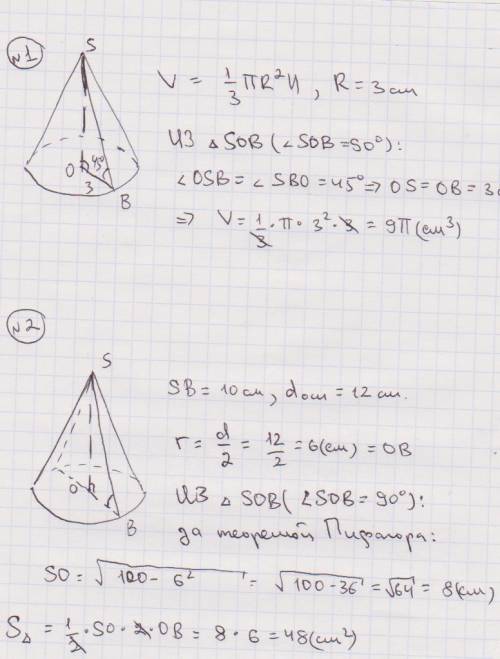 №1
S
O 45°
3
B
V = 1/3 πR²H, R = 3 см
Из △SOB (∠SOB = 90°):
∠OSB = ∠SBO = 45° ⇒ OS = OB = 3
⇒ V = 1/3 · π · 3² · 3 = 9π (см³)
№2
S
O
B
SB = 10 см, dосн = 12 см.
r = d/2 = 12/2 = 6 (см) = OB
Из △SOB (∠SOB = 90°):
да теоремой Пифагора:
SO = √100 - 6² = √100 - 36 = √64 = 8 (см)
S△ = 1/2 · SO · 2 · OB = 8 · 6 = 48 (см²)